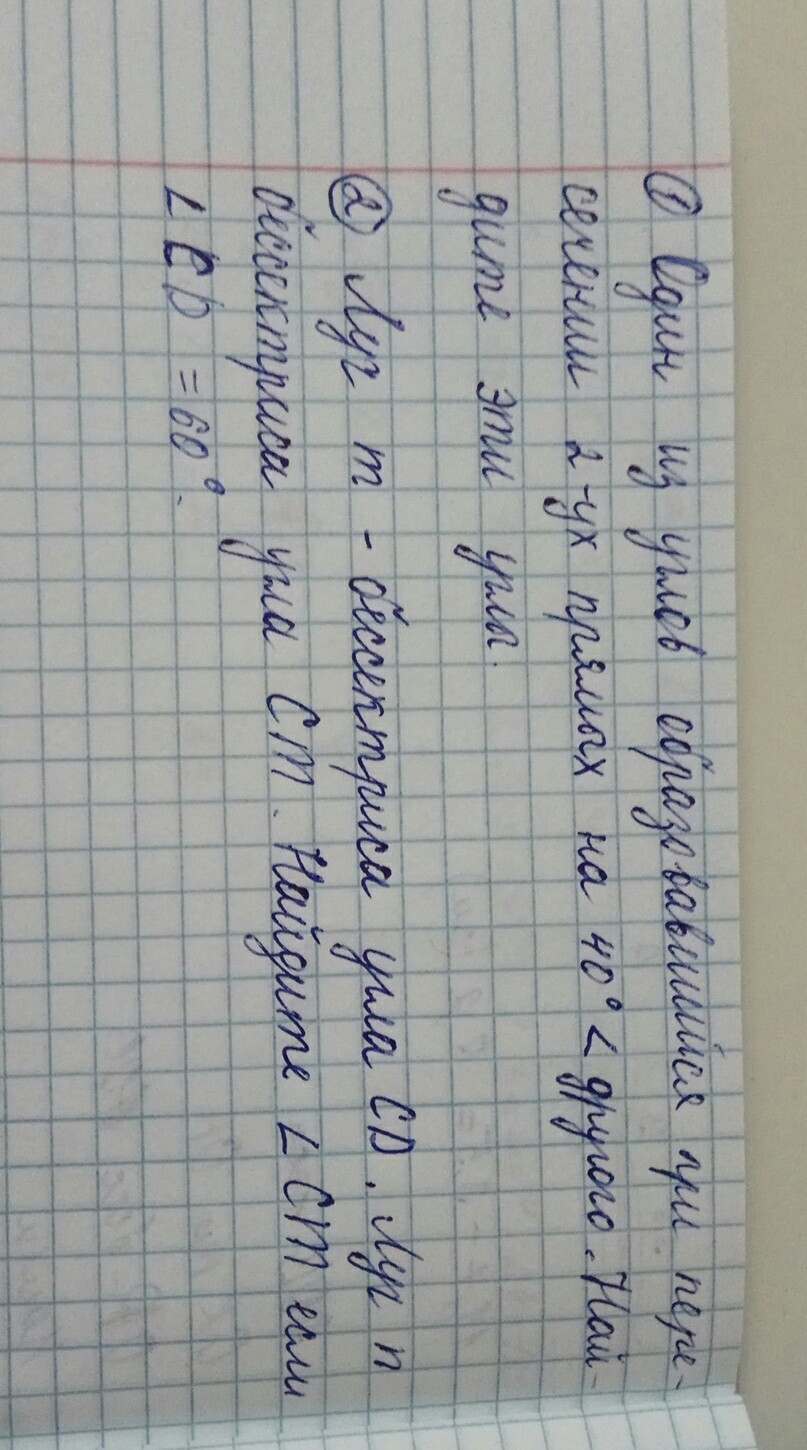 ① Один из углов образовавшийся при пере-
сечении 2-ух прямых на 40° < другого. Най-
дите эти углы.
② Луч m - бессектриса угла CD. Луч n
бессектриса угла Cm. Найдите ∠ Cm если
∠ CD = 60°.